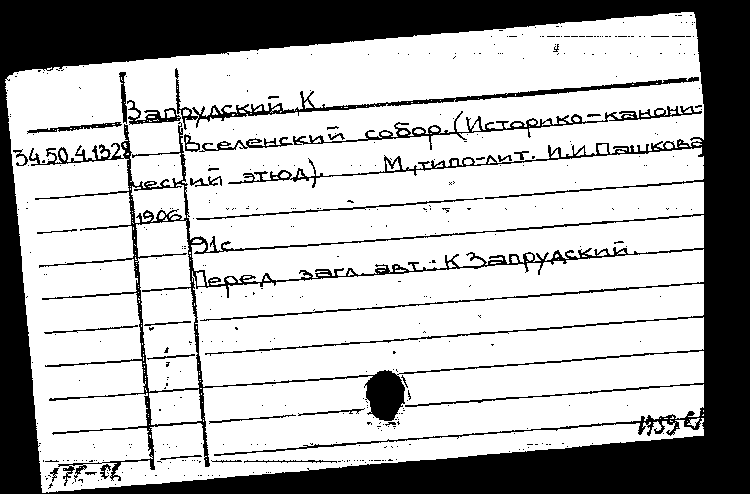 Запрудский, К.
34.50.4.1328 Вселенский собор. (Историко-канони-
ческий этюд). М., типо-лит. И.И.Пашкова,
1906.
91с.
Перед загл. авт.: К Запрудский.